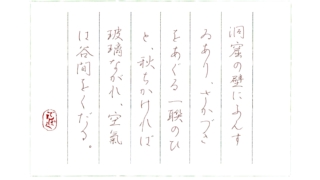 洞窟の壁によんす
ゐあり、さかづき
をあぐる一聯のひ
と、秋ちかければ
玻璃ながれ、空氣
は谷間をくだる。